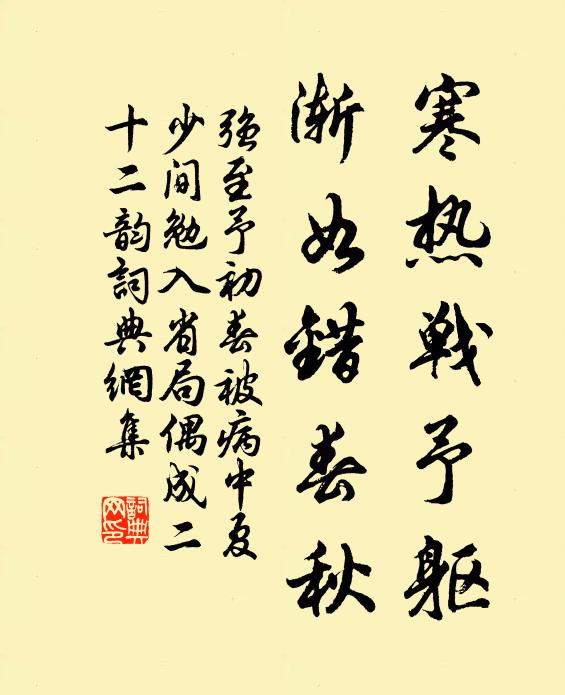 寒热戦予躯
渐如錯春秋
强至予初春被病中夏
少间勉入省局偶成二
十二韵詞典網集
詞典
网印